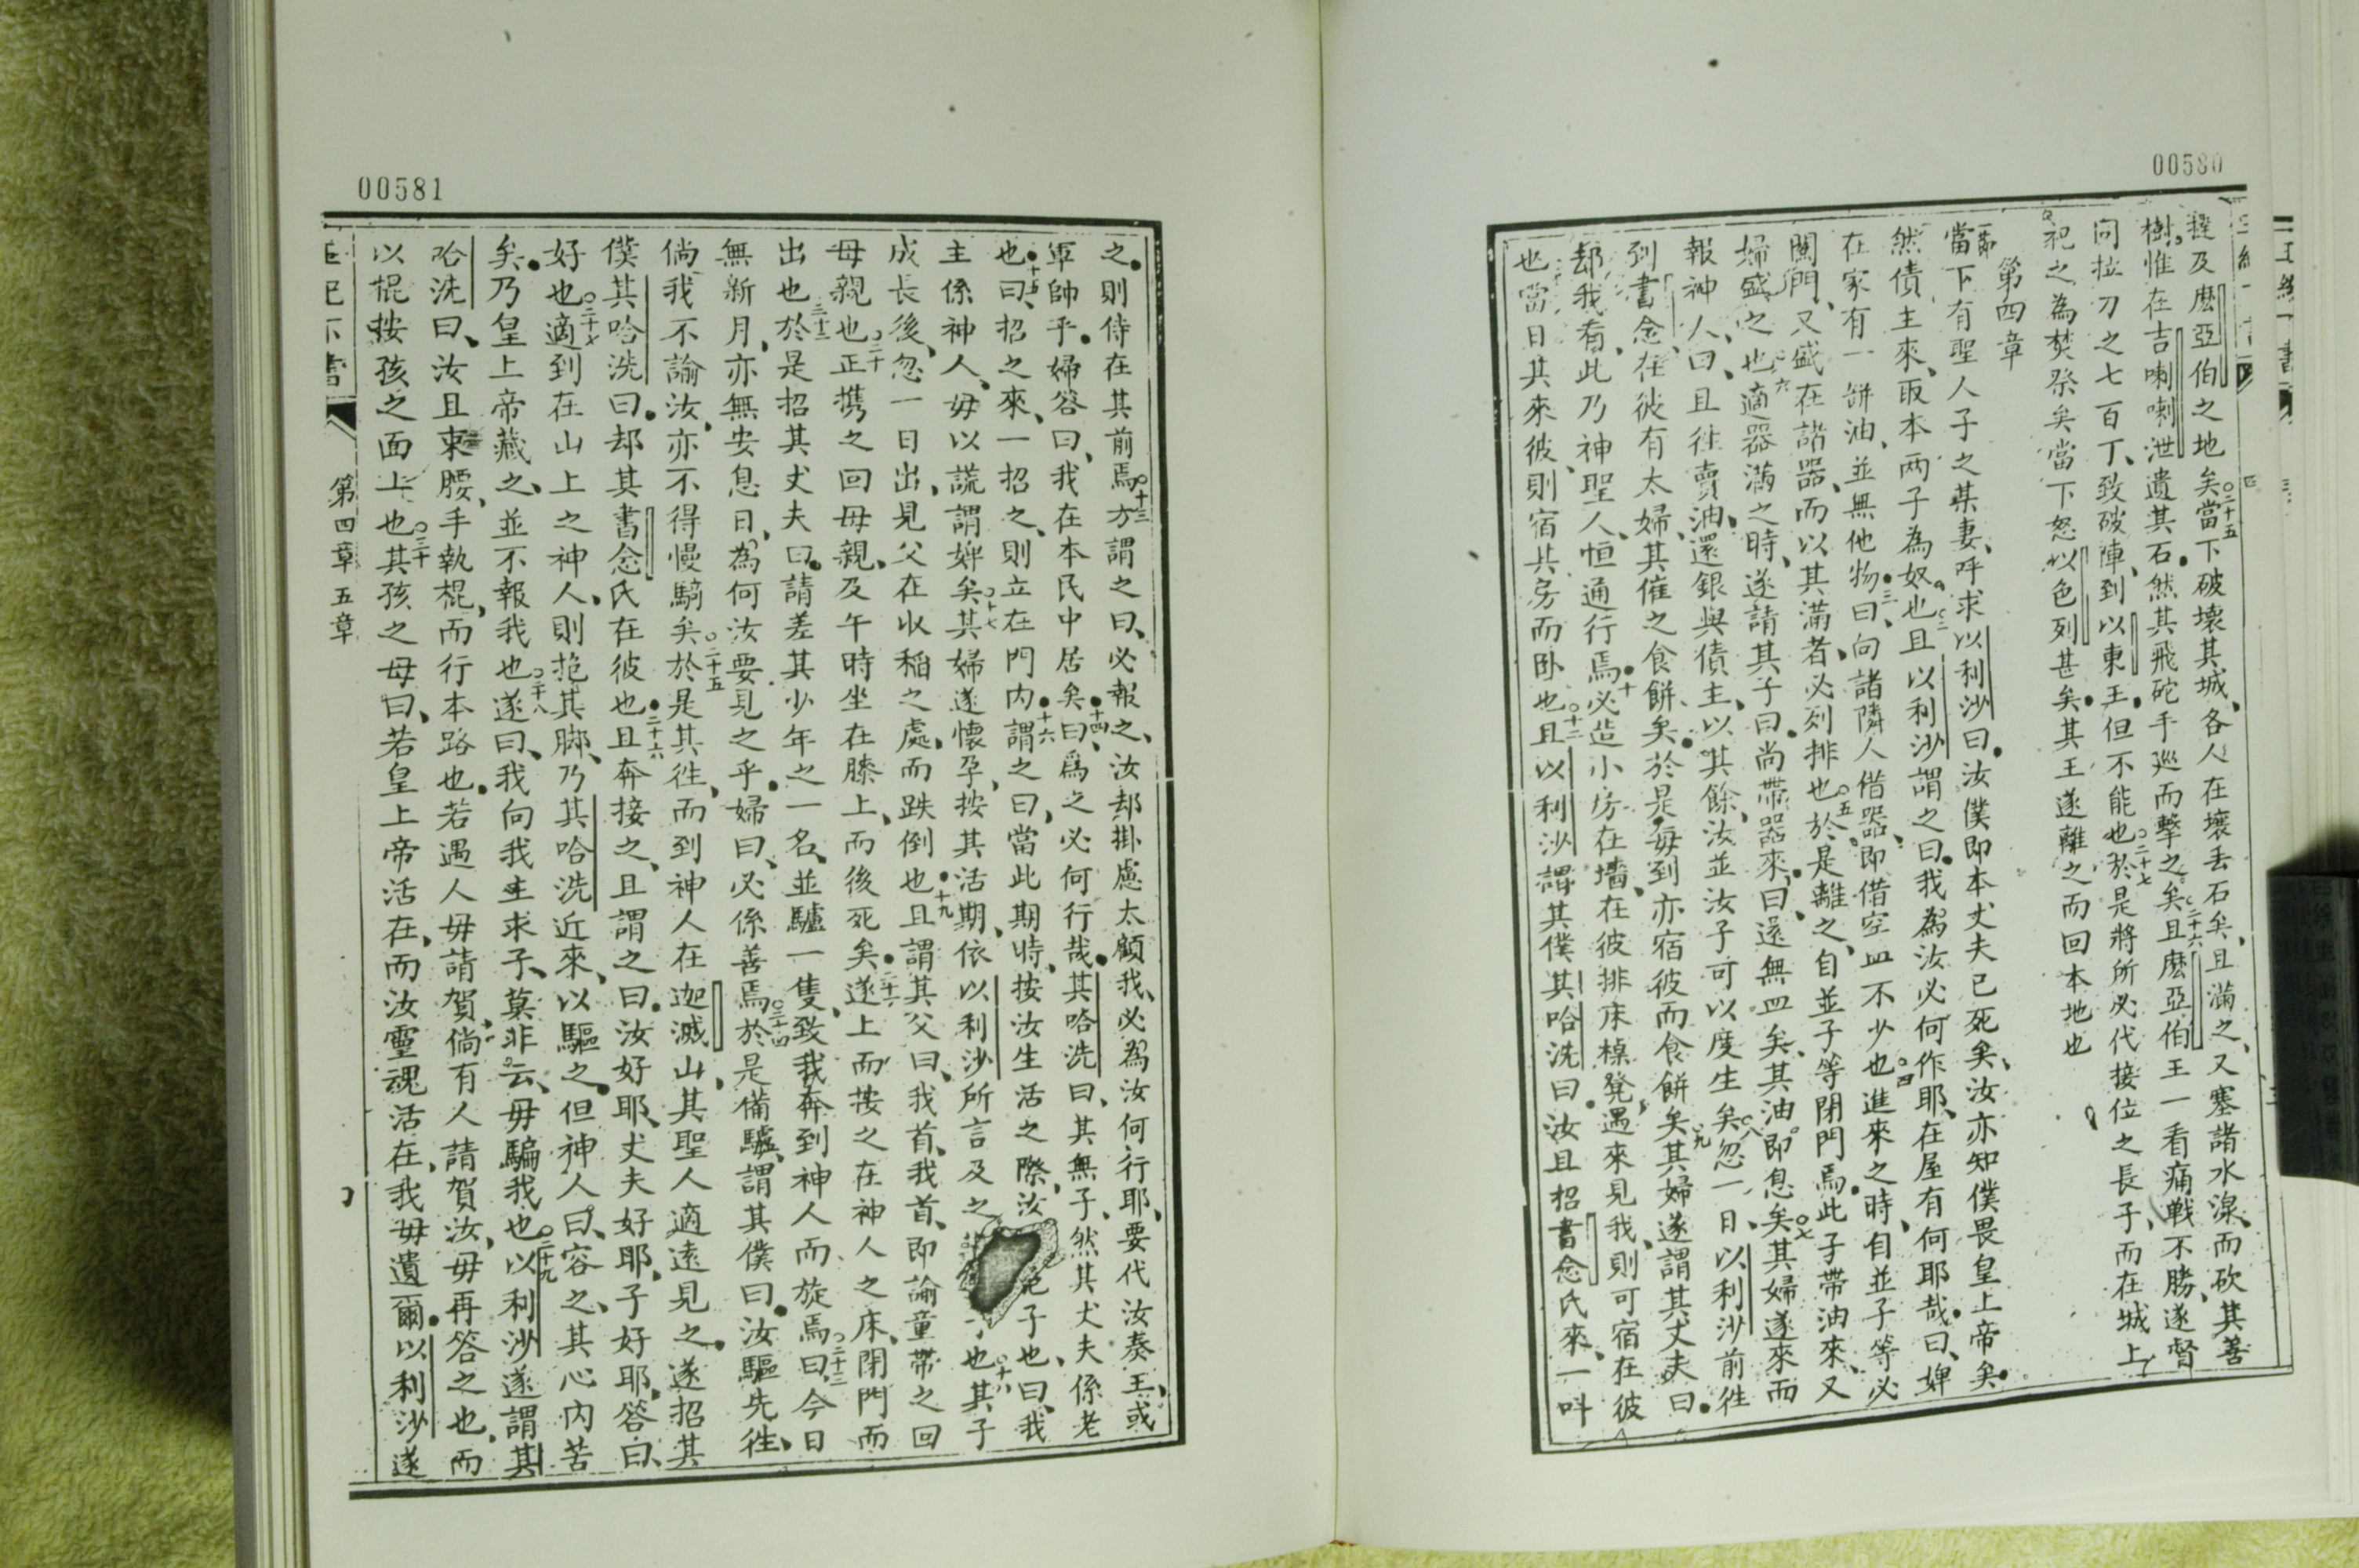 00580
撻及麽亞伯之地矣○二十五當下破壞其城、各人在壞丢石矣、且滿之、又塞諸水湶、而砍其善
樹、惟在吉喇喇泄遺其石、然其飛砣手巡而擊之矣○二十六且麽亞伯王一看痛戰不勝、遂督
同拉刀之七百丁、致破陣、到以東王、但不能也○二十七於是將所必代接位之長子、而在城上
祀之為焚祭矣當下怒以色列甚矣、其王遂離之而回本地也
第四章
一節當下有聖人子之某妻、呼求以利沙曰、汝僕即本丈夫已死矣、汝亦知僕畏皇上帝矣、
然債主來、取本两子為奴也○二且以利沙謂之曰、我為汝必何作耶、在屋有何耶哉、曰、婢
在家有一缾油、並無他物、○三曰、向諸隣人借器、即借空皿不少也○四進來之時、自並子等必
閞門、又盛在諸器、而以其滿者、必列排也○五於是離之、自並子等閉門焉、此子帶油來、又
婦盛之也○六適器滿之時、遂請其子曰、尚帶器來、曰、遂無皿矣、其油即息矣○七其婦遂來而
報神人、曰、且徃賣油、還銀與債主、以其餘、汝並汝子可以度生矣○八忽一日、以利沙前徃
到書念、在彼有太婦、其催之食餅矣、於是每到亦宿彼而食餅矣○九其婦遂謂其丈夫曰、
却我看、此乃神聖人、恒通行焉、○十必造小房在墻、在彼排床槕凳、遇來見我、則可宿在彼
也當日其來彼、則宿其房而卧也○十二且以利沙謂其僕其哈洗曰、汝且招書念氏來、一呌
00581
之、則侍在其前焉○十三方謂之曰、必報之、汝却掛慮太顧我、必為汝何行耶、要代汝奏王、或
軍帥乎、婦答曰、我在本民中居矣、○十四曰、爲之必何行哉、其哈洗曰、其無子、然其丈夫係老
也、○十五曰、招之來、一招之、則立在門内、○十六謂之曰、當此期時、按汝生活之際、汝子也、曰、我
主係神人、毋以謊謂婢矣○十七其婦遂懷孕、按其活期、依以利沙所言及之也○十八其子
成長後、忽一日出、見父在收稲之處、而跌倒也、○十九且謂其父曰、我首、我首、即諭童帶之回
母親也○二十正携之回母親、及午時坐在膝上、而後死矣、○二十一遂上而按之在神人之床、閉門而
出也○二十二於是招其丈夫曰、請差其少年之一名、並驢一隻、致我奔到神人而旋焉、○二十三曰、今日
無新月、亦無安息日、為何汝要見之乎、婦曰、必係善焉○二十四於是備驢、謂其僕曰、汝驅先徃、
倘我不諭汝、亦不得慢騎矣○二十五於是其徃、而到神人在迦滅山、其聖人適遠見之、遂招其
僕其哈洗曰、却其書念氏在彼也、○二十六且奔接之、且謂之曰、汝好耶、丈夫好耶、子好耶、答曰、
好也○二十七適到在山上之神人、則抱其脚、乃其哈洗近來、以驅之、但神人曰、容之、其心内苦
矣、乃皇上帝藏之、並不報我也○二十八遂曰、我向我主求子、莫非云、毋騙我也○二十九以利沙遂謂其
哈洗曰、汝且束腰、手執棍、而行本路也、若遇人毋請賀、倘有人請賀汝、毋再答之也、而
以棍按孩之面上也○三十其孩之母曰、若皇上帝活在、而汝靈魂活在、我毋遺爾、以利沙遂
第四章 五章